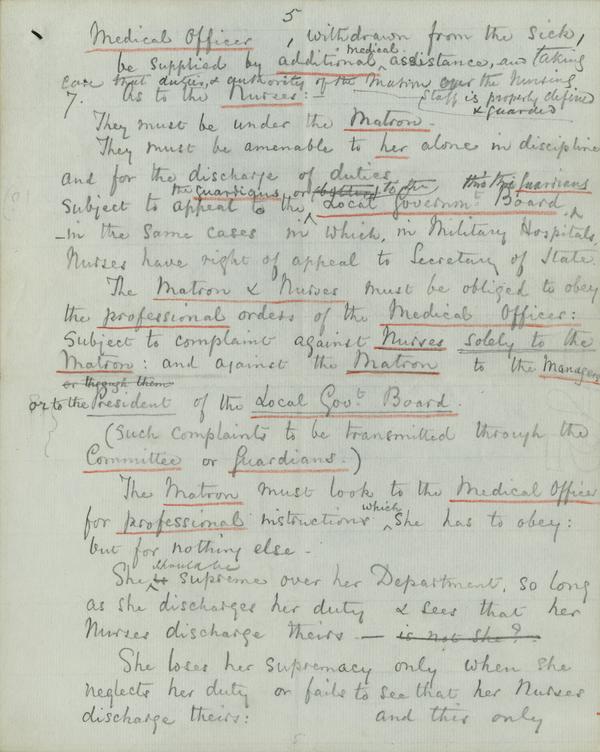 5
Medical Officer, withdrawn from the sick,
be supplied by additional medical assistance, and taking
care that duties, & authority of the Matron over the Nursing
Staff is properly defined
& guarded
7. As to the Nurses:
They must be under the Matron.
They must be amenable to her alone in discipline
and for the discharge of duties
the guardians or to the Guardians
Subject to appeal to the Local Governmt Board.
- in the same cases in which, in Military Hospitals,
Nurses have right of appeal to Secretary of State.
The Matron & Nurses must be obliged to obey
the professional orders of the Medical Officer:
Subject to complaint against Nurses solely to the
Matron: and against the Matron to the Managers
or through them
or to the President of the Local Govt. Board.
(Such complaints to be transmitted through the
Committee or Guardians.)
The Matron must look to the Medical Officer
for professional instructions which she has to obey:
but for nothing else.
She is should be supreme over her Department, so long
as she discharges her duty & sees that her
Nurses discharge theirs. — is not she?
She loses her supremacy only when she
neglects her duty or fails to see that her Nurses
discharge theirs: and this only
5